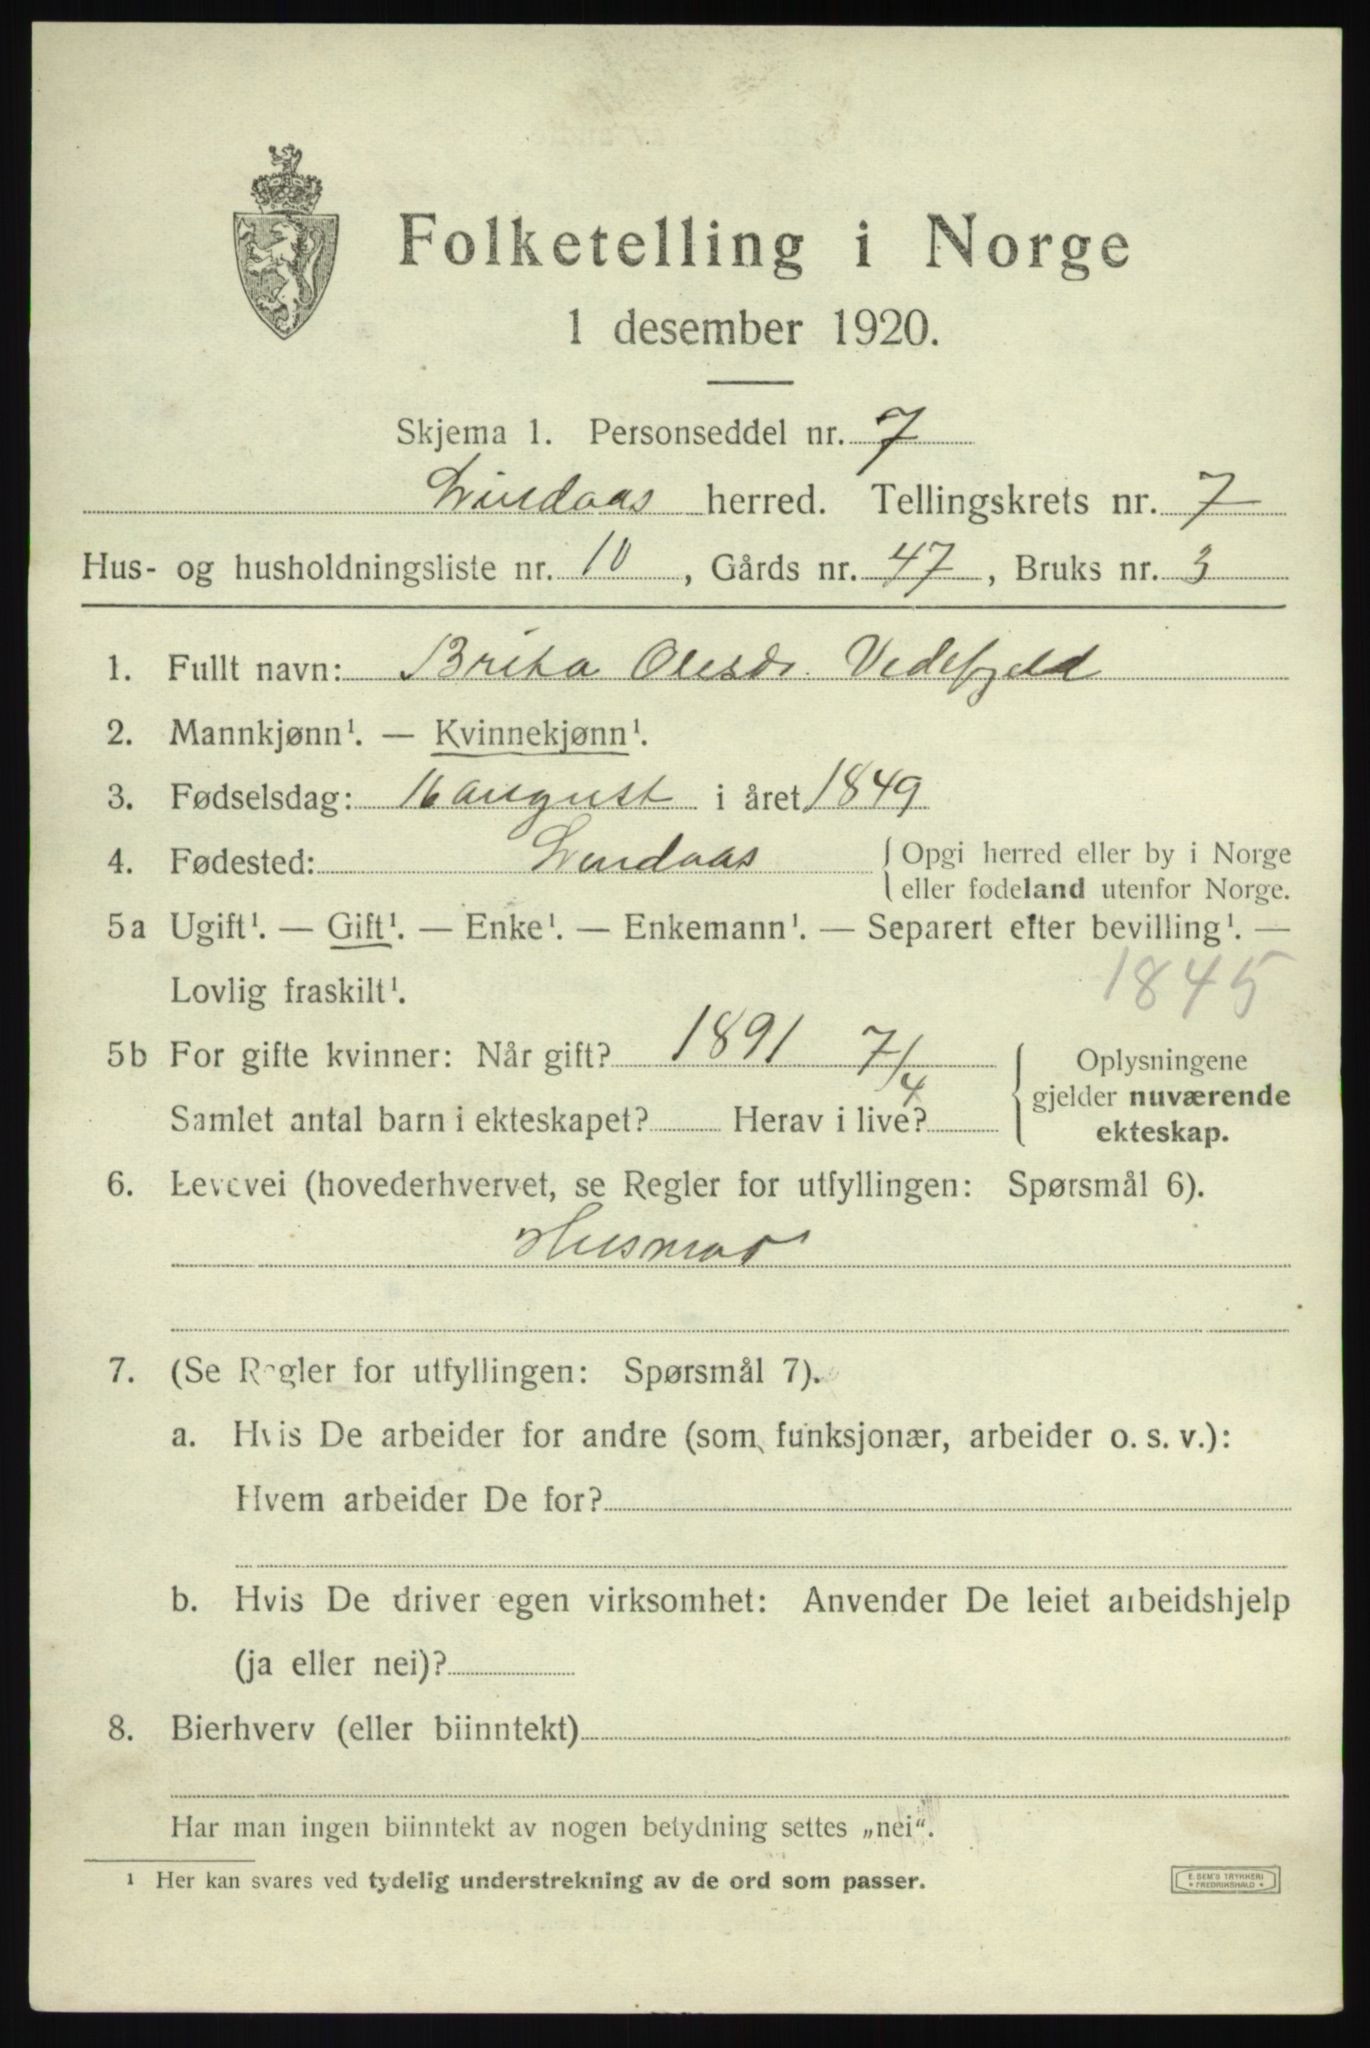 Folketelling i Norge
1 desember 1920.
Skjema 1. Personseddel nr. 7
Lindaas herred. Tellingskrets nr. 7
Hus- og husholdningsliste nr. 10, Gårds nr. 47, Bruks nr. 3
1. Fullt navn: Brita Olesdr. Vedefjeld
2. Mannkjønn¹. — Kvinnekjønn¹.
3. Fødselsdag: 16 august i året 1849
4. Fødested: Lindaas { Opgi herred eller by i Norge
eller fødeland utenfor Norge.
5a Ugift¹. — Gift¹. — Enke¹. — Enkemann¹. — Separert efter bevilling¹. —
Lovlig fraskilt¹. 1845
5b For gifte kvinner: Når gift? 1891 7/4
Samlet antal barn i ekteskapet? Herav i live?
{ Oplysningene
gjelder nuværende
ekteskap.
6. Levevei (hovederhvervet, se Regler for utfyllingen: Spørsmål 6).
Husmor
7. (Se Regler for utfyllingen: Spørsmål 7).
a. Hvis De arbeider for andre (som funksjonær, arbeider o. s. v.):
Hvem arbeider De for?
b. Hvis De driver egen virksomhet: Anvender De leiet arbeidshjelp
(ja eller nei)?
8. Bierhverv (eller biinntekt)
Har man ingen biinntekt av nogen betydning settes „nei“.
¹ Her kan svares ved tydelig understrekning av de ord som passer.
E. SEM'S TRYKKERI
* FREDRIKSHALD *